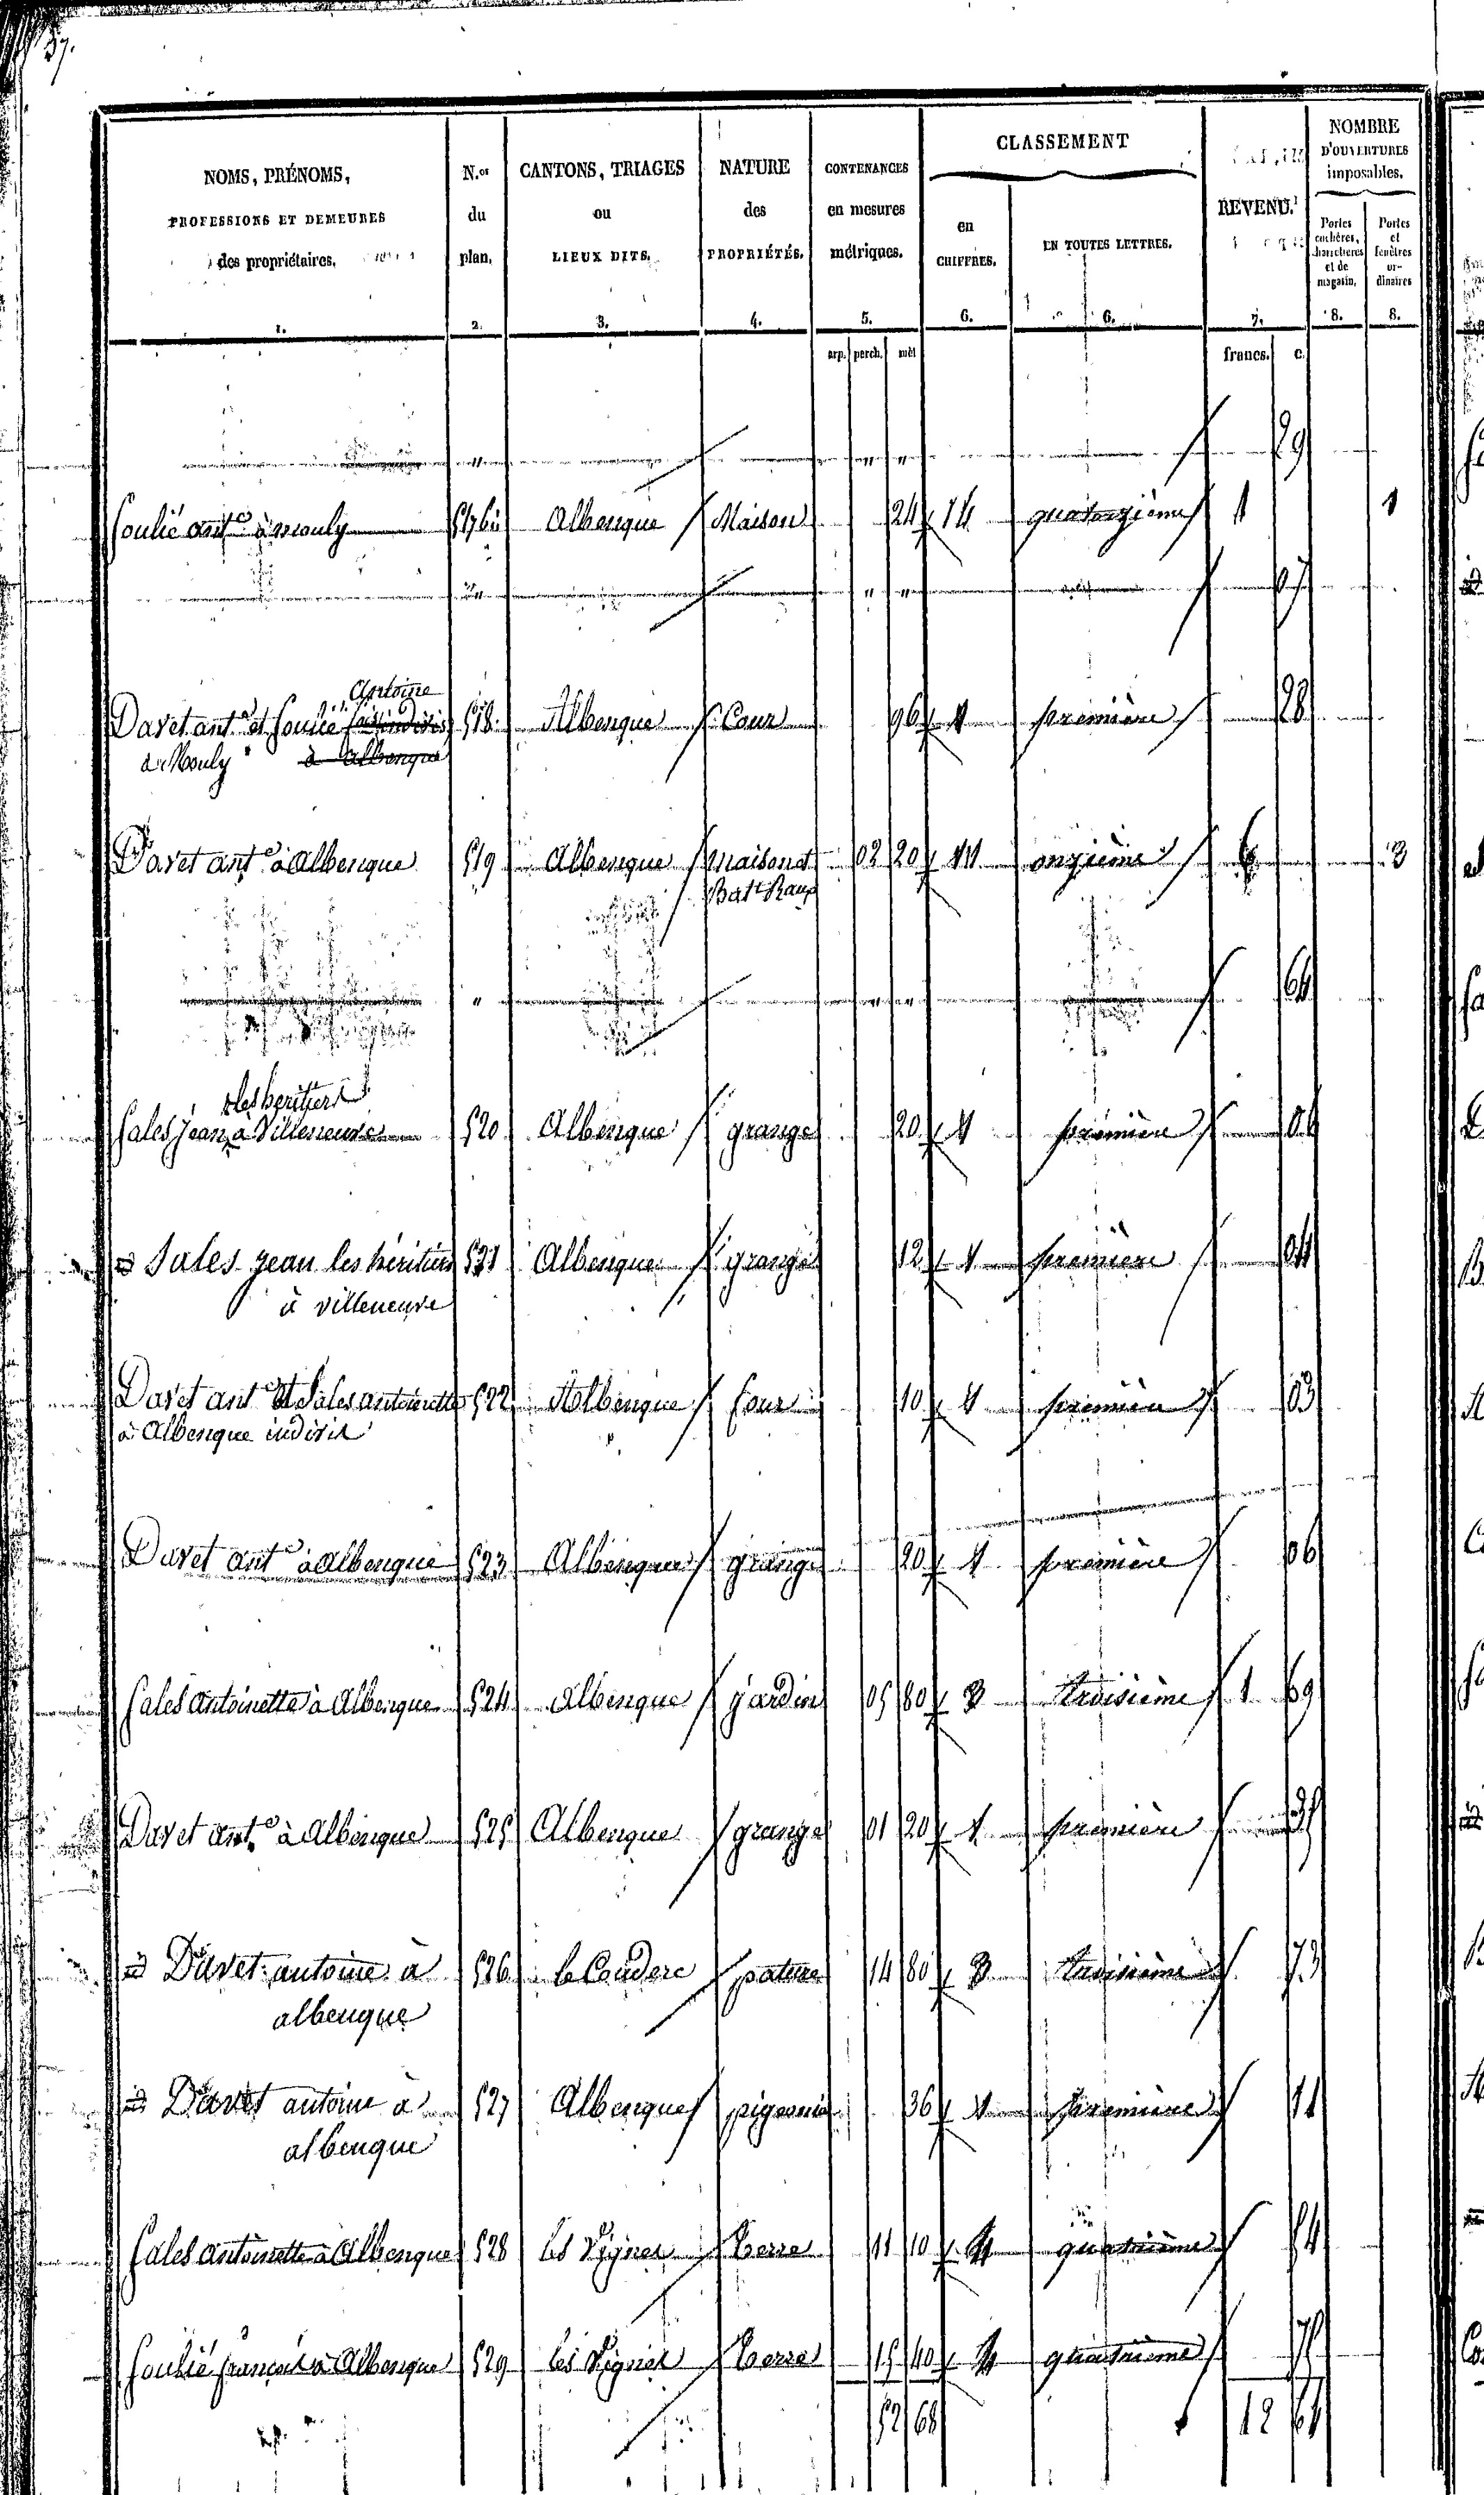 37.
NOMS, PRÉNOMS, PROFESSIONS ET DEMEURES des propriétaires. N.os du plan. CANTONS, TRIAGES ou LIEUX DITS. NATURE des PROPRIÉTÉS. CONTENANCES en mesures métriques. CLASSEMENT en CHIFFRES. EN TOUTES LETTRES. REVENU. NOMBRE D'OUVERTURES imposables. Portes cochères, charretières et de magasin. Portes et fenêtres ordinaires
1. 2. 3. 4. 5. 6. 6. 7. 8. 8.
arp. perch. mèt francs. c.
29
Soulié ant.e à mouly 517 bis Albenque Maison 24 14 quatorzième 1 1
07
Antoine
Davet ant.e et Soulié 518 Albenque Cour 96 1 première 28
à Mouly à Albenque
Davet ant.e à Albenque 519 Albenque Maison et 02 20 11 onzième 6 3
Bat.t Raux
64
les héritiers
Sales Jean à Villeneuve 520 Albenque grange 20 1 première 06
Sales Jean les héritiers 521 Albenque grange 12 1 première 04
à villeneuve
Davet ant.e et Sales antoinette 522 Albenque four 10 1 première 03
à Albenque indivis
Davet ant.e à Albenque 523 Albenque grange 20 1 première 06
Sales Antoinette à Albenque 524 Albenque jardin 05 80 3 troisième 1 69
Davet ant.e à Albenque 525 Albenque grange 01 20 1 première 35
Davet antoine à 526 le Couderc pature 14 80 3 troisième 73
albenque
Davet antoine à 527 Albenque pigeonnier 36 1 première 11
albenque
Sales Antoinette à Albenque 528 les Vignes Terre 11 10 4 quatrième 54
Soulié françois à Albenque 529 les Vignes Terre 15 40 4 quatrième 75
52 68 12 64